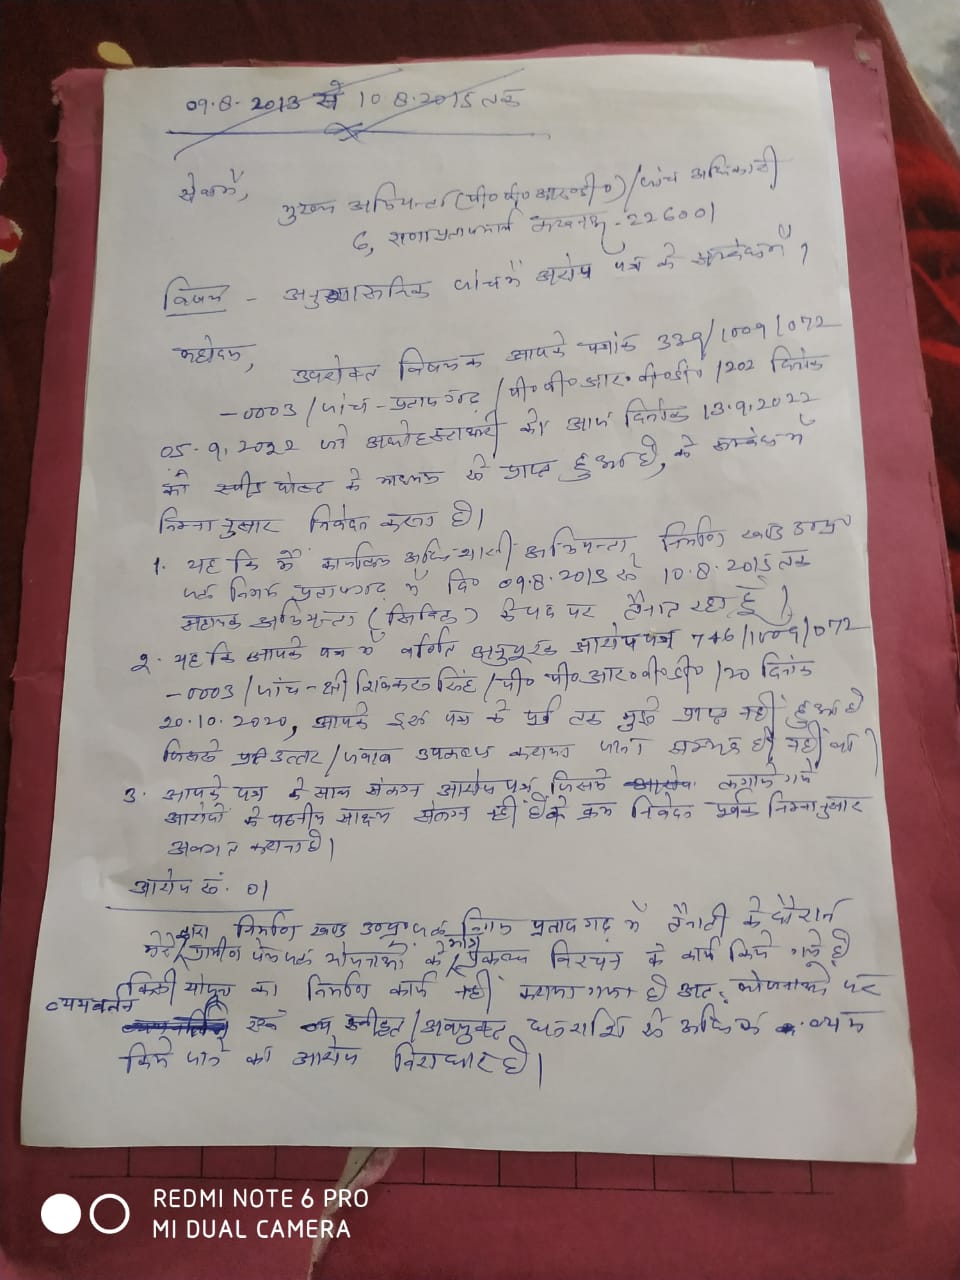 09.8.2013 से 10.8.2015 तक
सेवामें,
मुख्य अभियन्ता (पी० पी० आर०डी०)/जांच अधिकारी
6, राणाप्रतापमार्ग लखनऊ-226001
विषय - अनुशासनिक जांच में आरोप पत्र के सम्बंध में।
महोदय,
उपरोक्त विषयक आपके पत्रांक 339/1009/072
-0003/जांच-प्रतापगढ़/पी० पी० आर० वी०डी०/202 दिनांक
05.9.2022 जो अधोहस्ताक्षरी को आज दिनांक 13.9.2022
को स्पीड पोस्ट के माध्यम से प्राप्त हुआ है, के सम्बंध में
निम्नानुसार निवेदन करना है।
1. यह कि मैं कार्यालय अधिशासी अभियन्ता, निर्माण खण्ड उ०प्र०
जल निगम प्रतापगढ़ में दि० 09.8.2013 से 10.8.2015 तक
सहायक अभियन्ता (सिविल) के पद पर तैनात रहा हूँ।
2. यह कि आपके पत्र में वर्णित अनुपूरक आरोप पत्र 746/1009/072
-0003/जांच-श्री शिवकरन सिंह/पी० पी० आर०वी०डी०/20 दिनांक
20.10.2020, आपके इस पत्र के पूर्व तक मुझे प्राप्त नहीं हुआ है
जिसके प्रतिउत्तर/जवाब उपलब्ध कराया जाना सम्भव ही नहीं था।
3. आपके पत्र के साथ संलग्न आरोप पत्र जिसमें आरोप लगाये गये
आरोपों के पठनीय साक्ष्य संलग्न नहीं है के क्रम निवेदन पूर्वक निम्नानुसार
अवगत कराना है।
आरोप सं. 01
मेरे द्वारा निर्माण खण्ड उ०प्र० जल निगम प्रतापगढ़ में तैनाती के दौरान
ग्रामीण पेयजल योजनाओं के मात्र प्राकलन विरचन के कार्य किये गये है
किसी योजना का निर्माण कार्य नहीं कराया गया है अतः योजनाओं पर
व्ययवर्तन
एवं स्वीकृत/अवमुक्त धनराशि से अधिक व्यय
किये जाने का आरोप निराधार है।
REDMI NOTE 6 PRO
MI DUAL CAMERA